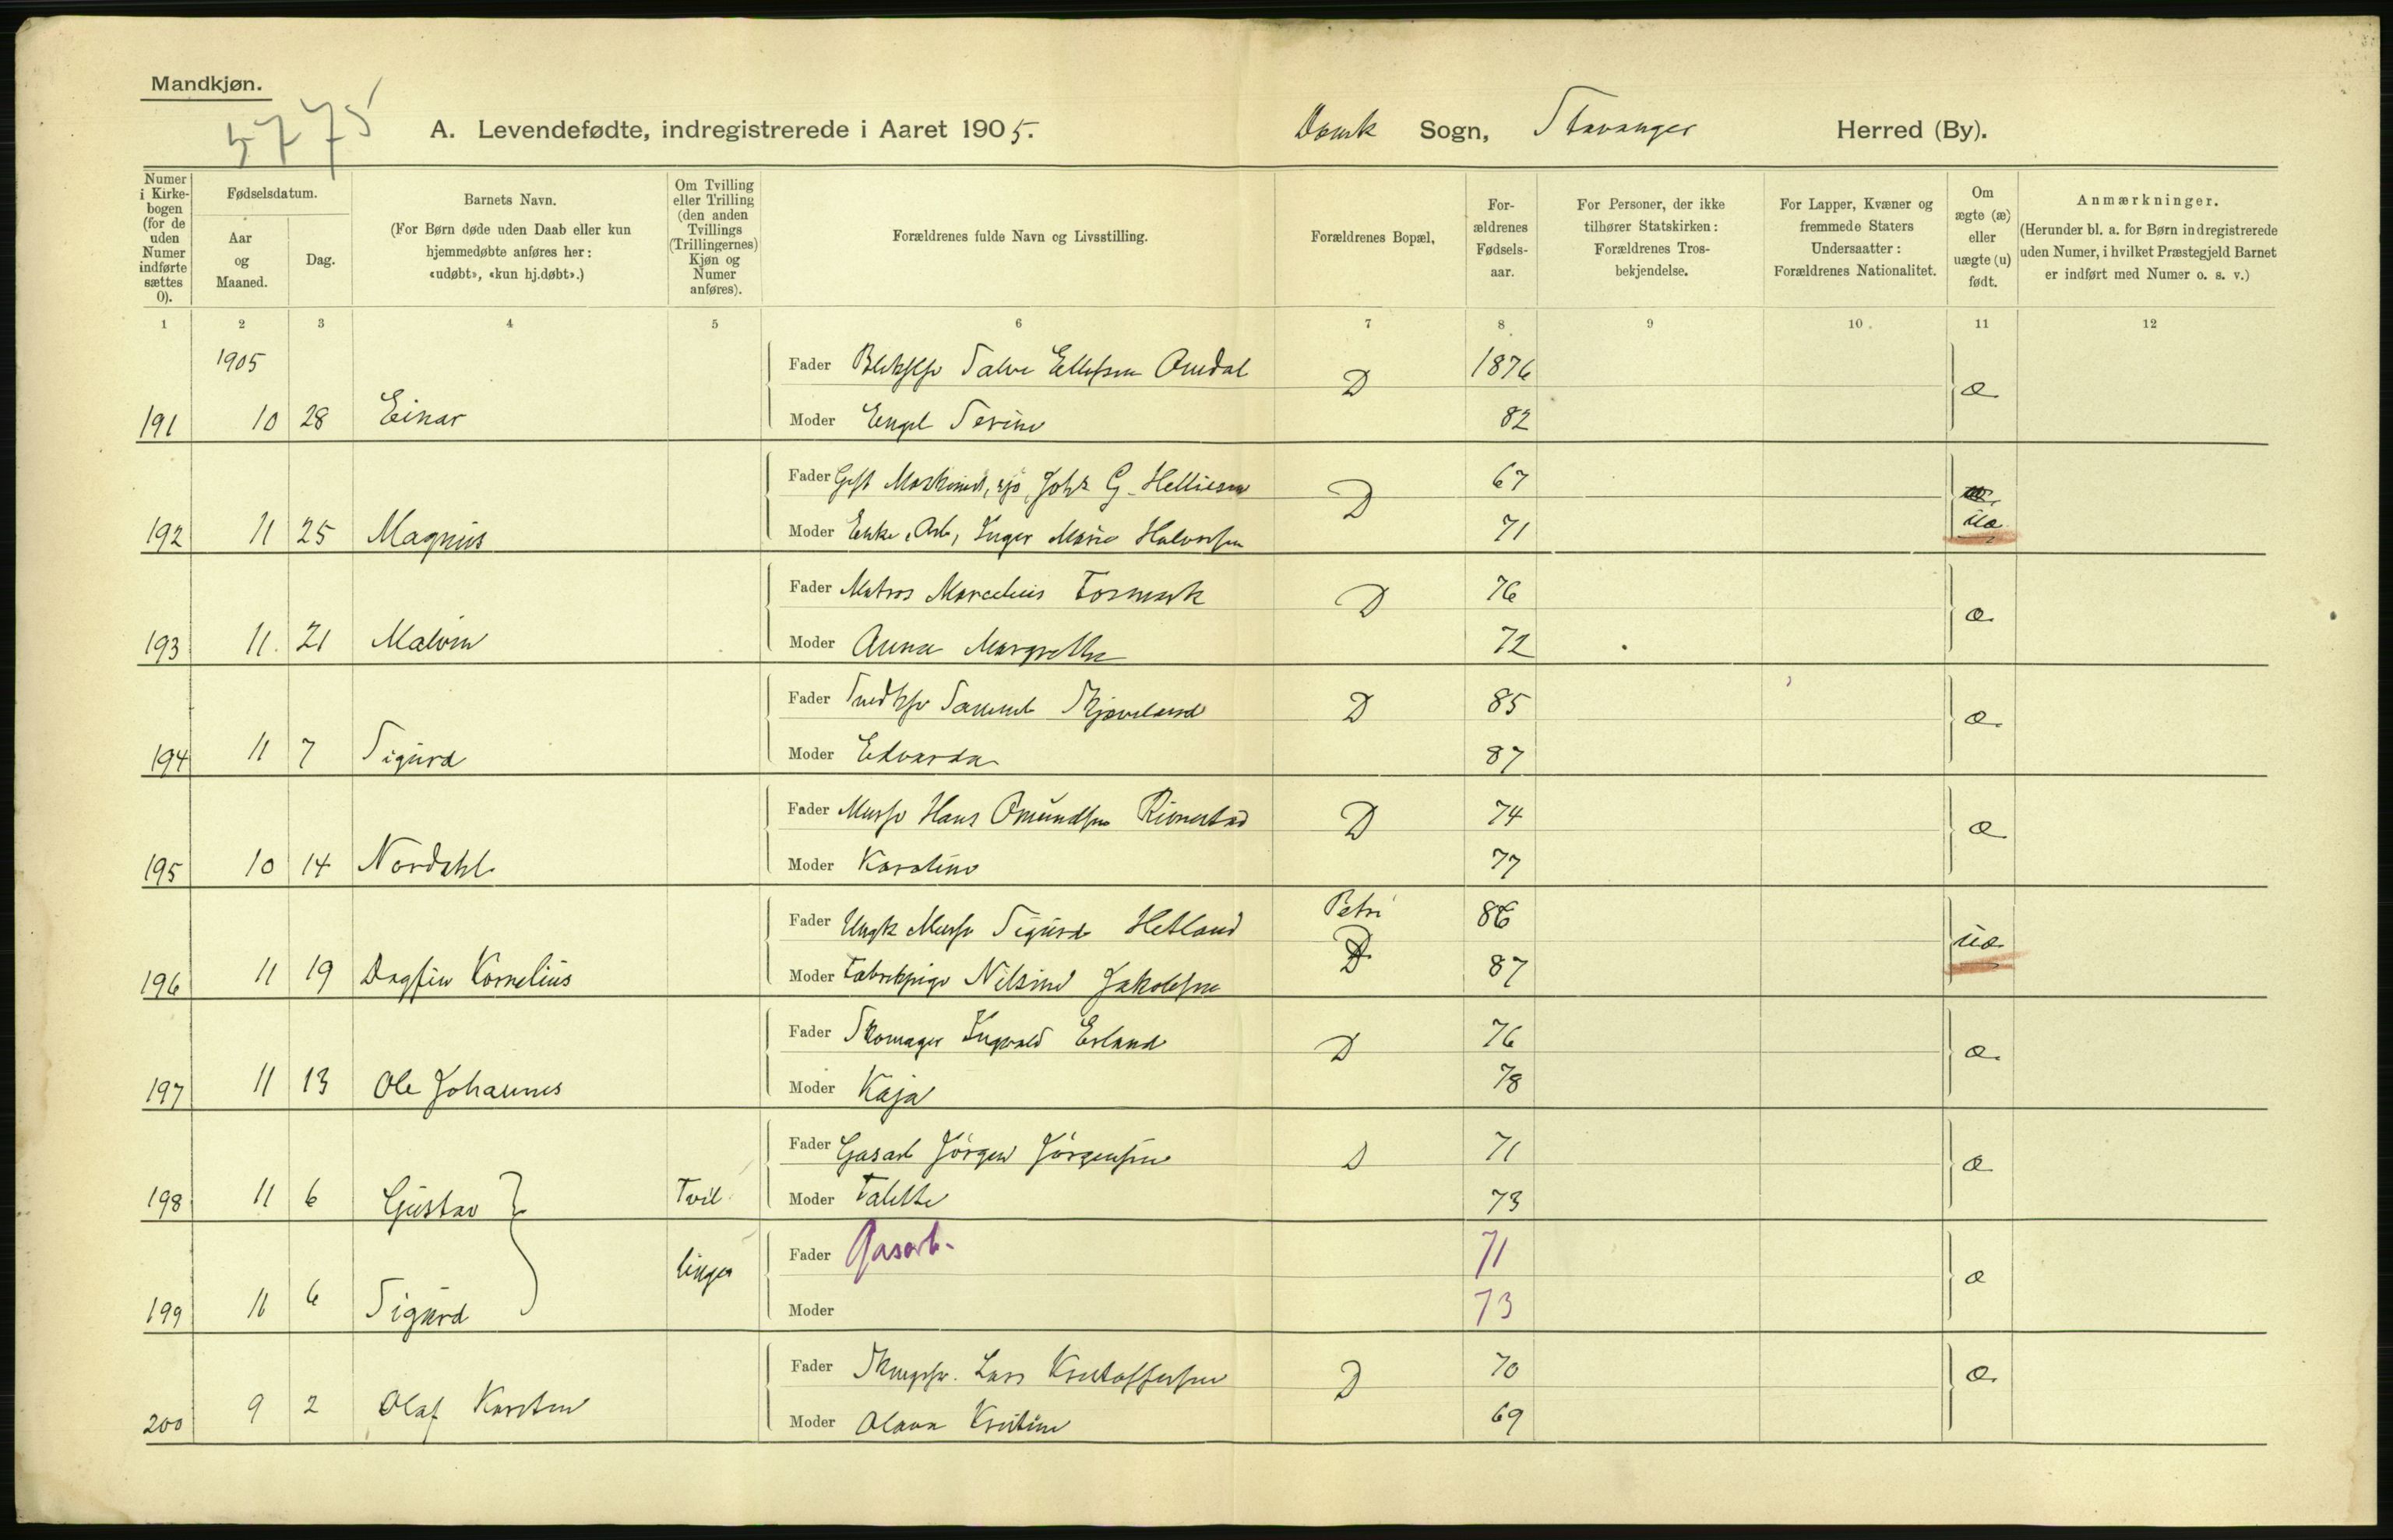 Mandkjøn.
5775
A. Levendefødte, indregistrerede i Aaret 1905. Domk Sogn, Stavanger Herred (By).
Numer i Kirkebogen (for de uden Numer indførte sættes 0).
Fødselsdatum.
Aar og Maaned.
Dag.
Barnets Navn.
(For Børn døde uden Daab eller kun hjemmedøbte anføres her: «udøbt», «kun hj.døbt».)
Om Tvilling eller Trilling (den anden Tvillings (Trillingernes) Kjøn og Numer anføres).
Forældrenes fulde Navn og Livsstilling.
Forældrenes Bopæl,
Forældrenes Fødselsaar.
For Personer, der ikke tilhører Statskirken: Forældrenes Trosbekjendelse.
For Lapper, Kvæner og fremmede Staters Undersaatter: Forældrenes Nationalitet.
Om ægte (æ) eller uægte (u) født.
Anmærkninger.
(Herunder bl. a. for Børn indregistrerede uden Numer, i hvilket Præstegjeld Barnet er indført med Numer o. s. v.)
1 2 3 4 5 6 7 8 9 10 11 12
1905
Fader Salve Ellefsen Omdal D 1876 æ
191 10 28 Einar Moder Engel Serine 82
Fader Gift Johs G. Helliesen D 67
192 11 25 Magnus Moder Enke, Arb, Inger Marie Halvorsen 71 uæ
Fader Matros Marcelius Tormork D 76 æ
193 11 21 Malvin Moder Anna Margrethe 72
Fader Samuel Skjæveland D 85 æ
194 11 7 Sigurd Moder Edvarda 87
Fader Hans Omundsen D 74 æ
195 10 14 Nordahl Moder Karoline 77
Fader Ungk Sigurd Hetland Petri 86 uæ
196 11 19 Dagfin Kornelius Moder Fabrikpige Nilsine Jakobsen D 87
Fader Skomager Ingvald Erland D 76 æ
197 11 13 Ole Johannes Moder Kaja 78
Fader Gasarb Jörgen Jörgensen D 71 æ
198 11 6 Gustav Tvil Moder Talette 73
Fader Gasarb. 71 æ
199 11 6 Sigurd linger Moder 73
Fader Lars Kristoffersen D 70 æ
200 9 2 Olaf Karsten Moder Olava Kristine 69